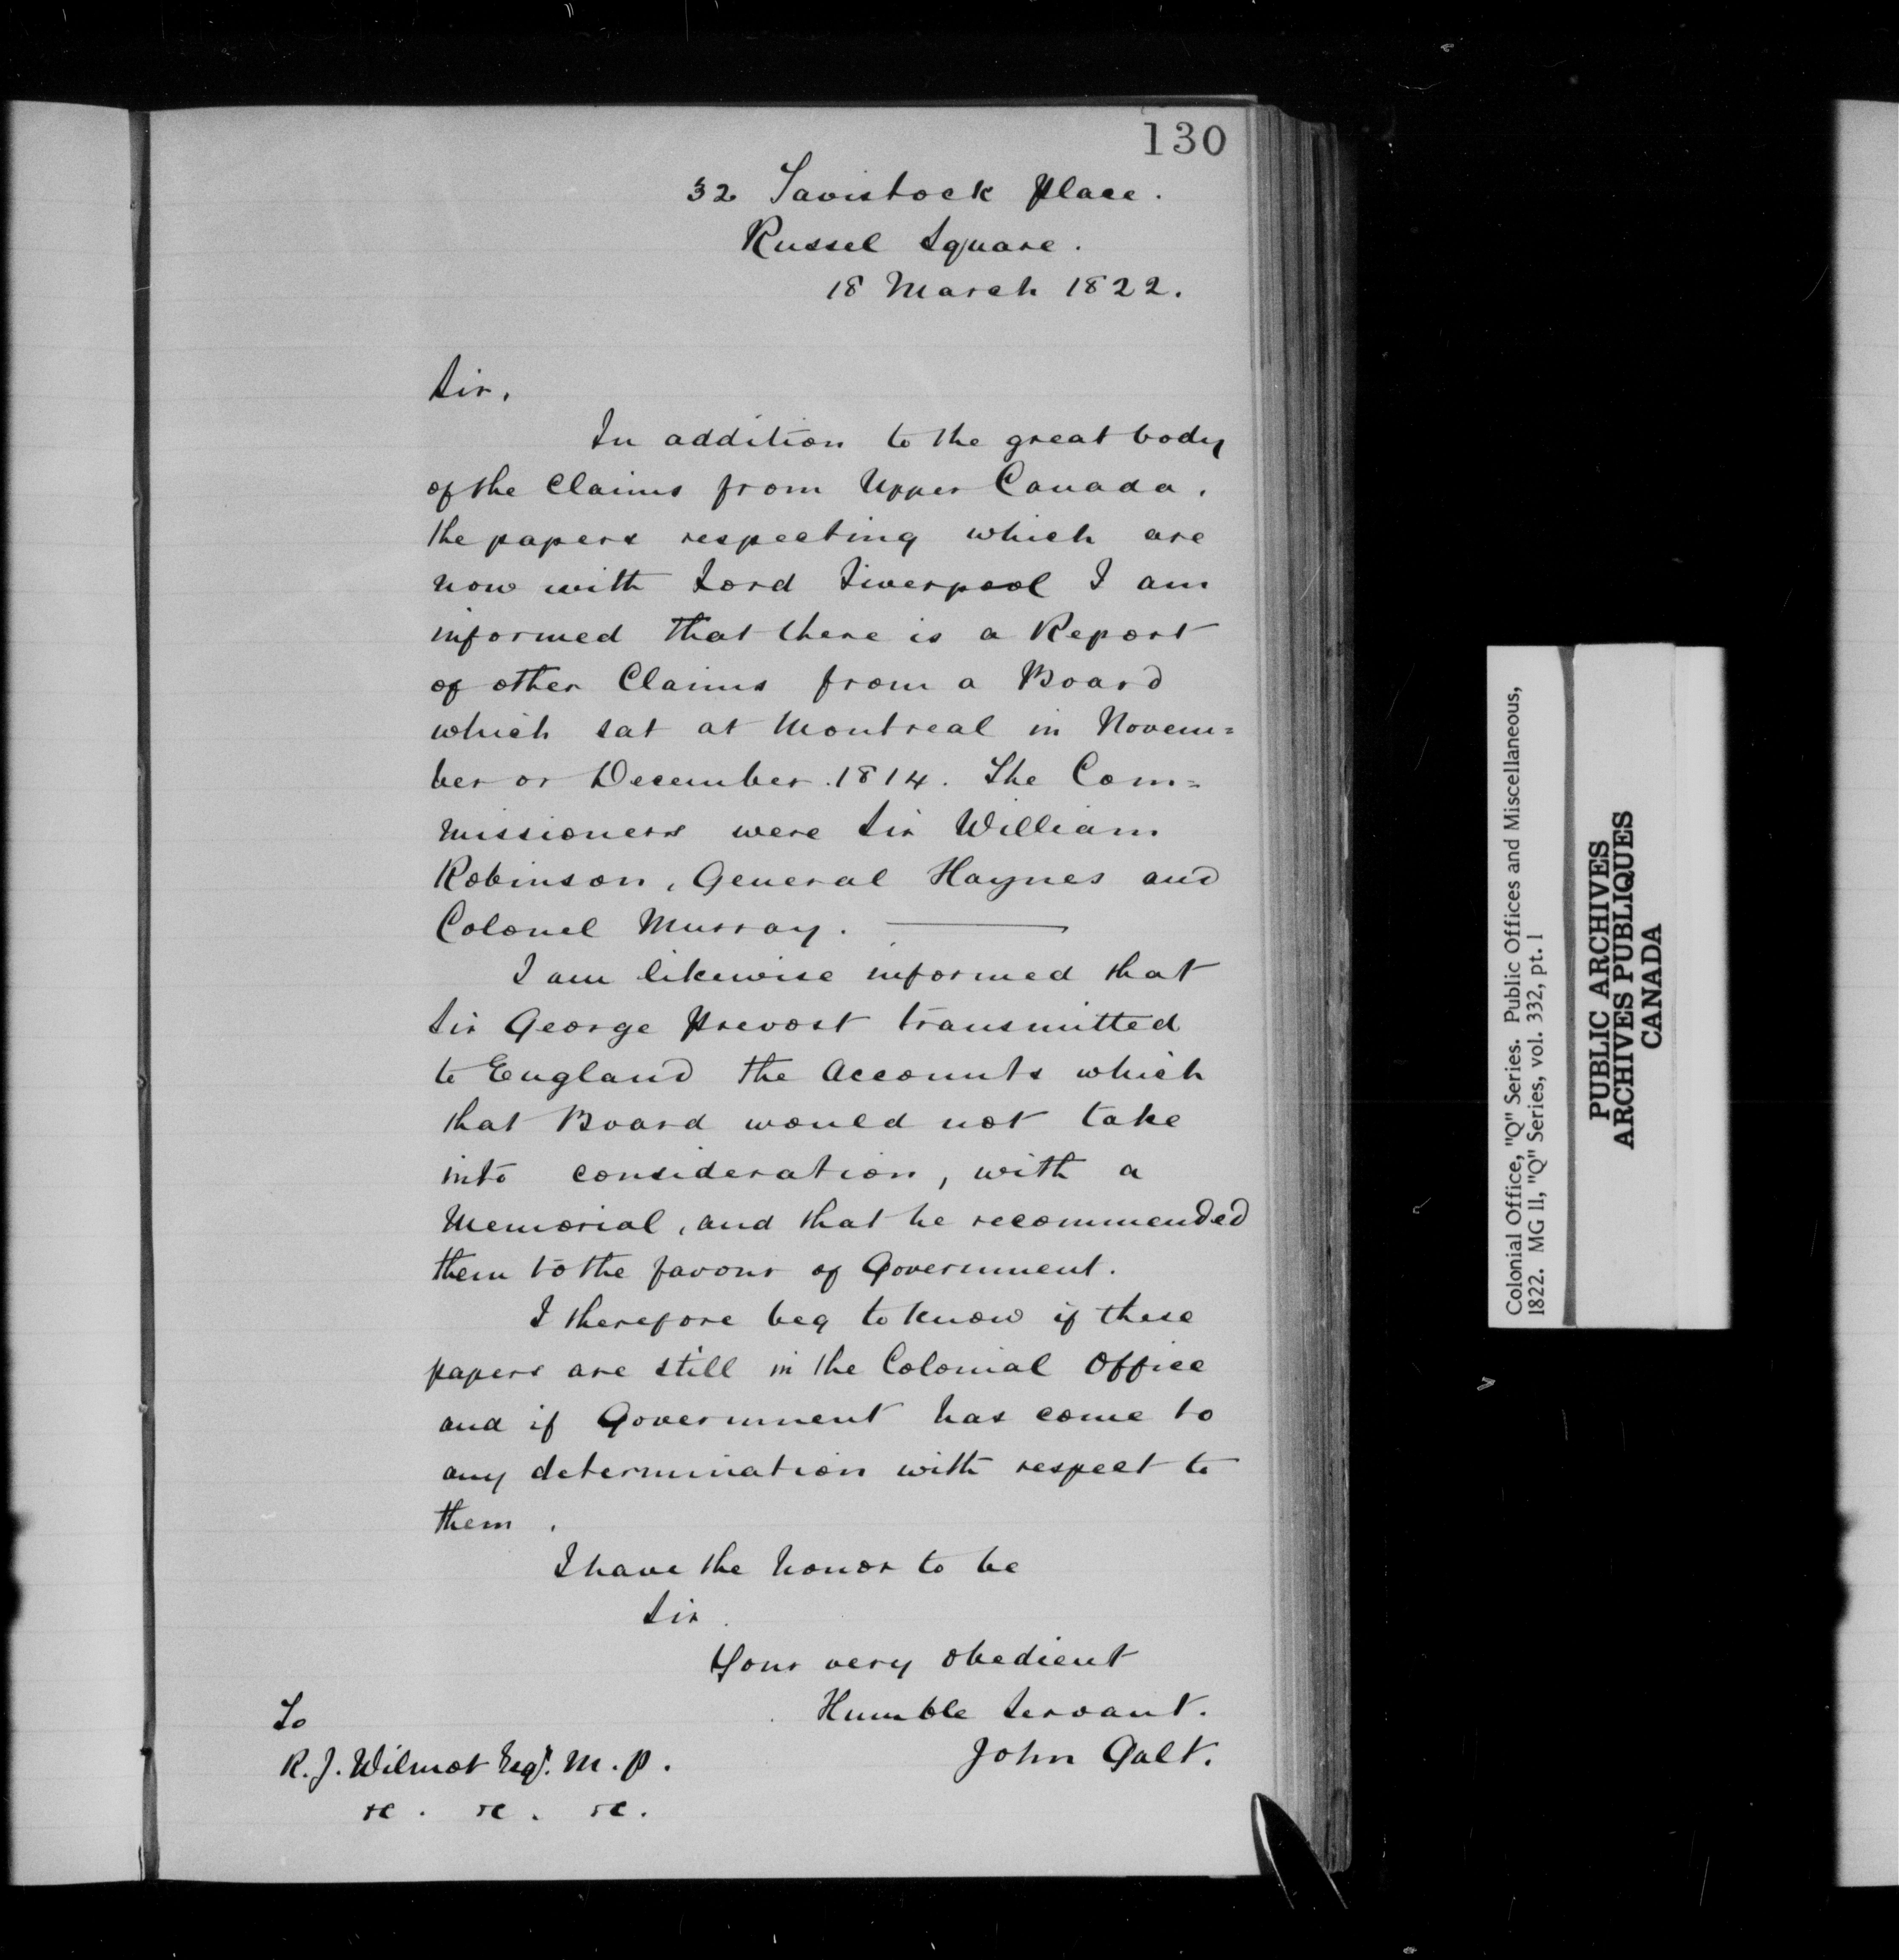 130
32 Tavistock Place.
Russel Square.
18 March 1822.
Sir,
In addition to the great body
of the Claims from Upper Canada,
the papers respecting which are
now with Lord Liverpool I am
informed that there is a Report
of other Claims from a Board
which sat at Montreal in Novem=
ber or December 1814. The Com=
missioners were Sir William
Robinson, General Haynes and
Colonel Murray.
I am likewise informed that
Sir George Prevost transmitted
to England the Accounts which
that Board would not take
into consideration, with a
Memorial, and that he recommended
them to the favour of Government.
I therefore beg to know if these
papers are still in the Colonial Office
and if Government has come to
any determination with respect to
them.
I have the honor to be
Sir
Your very obedient
Humble Servant.
John Galt.
To
R. J. Wilmot Esqr. M. P.
&c. &c. &c.
Colonial Office, "Q" Series. Public Offices and Miscellaneous,
1822. MG 11, "Q" Series, vol. 332, pt. 1
PUBLIC ARCHIVES
ARCHIVES PUBLIQUES
CANADA